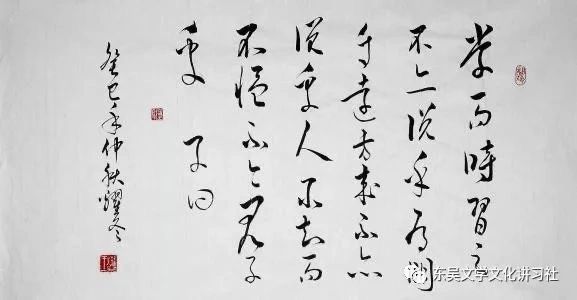 学而時習之
不亦说乎有朋
自遠方来不亦
说乎人不知而
不愠不亦君子
乎 子曰
癸巳年仲秋耀
东吴文学文化讲习社